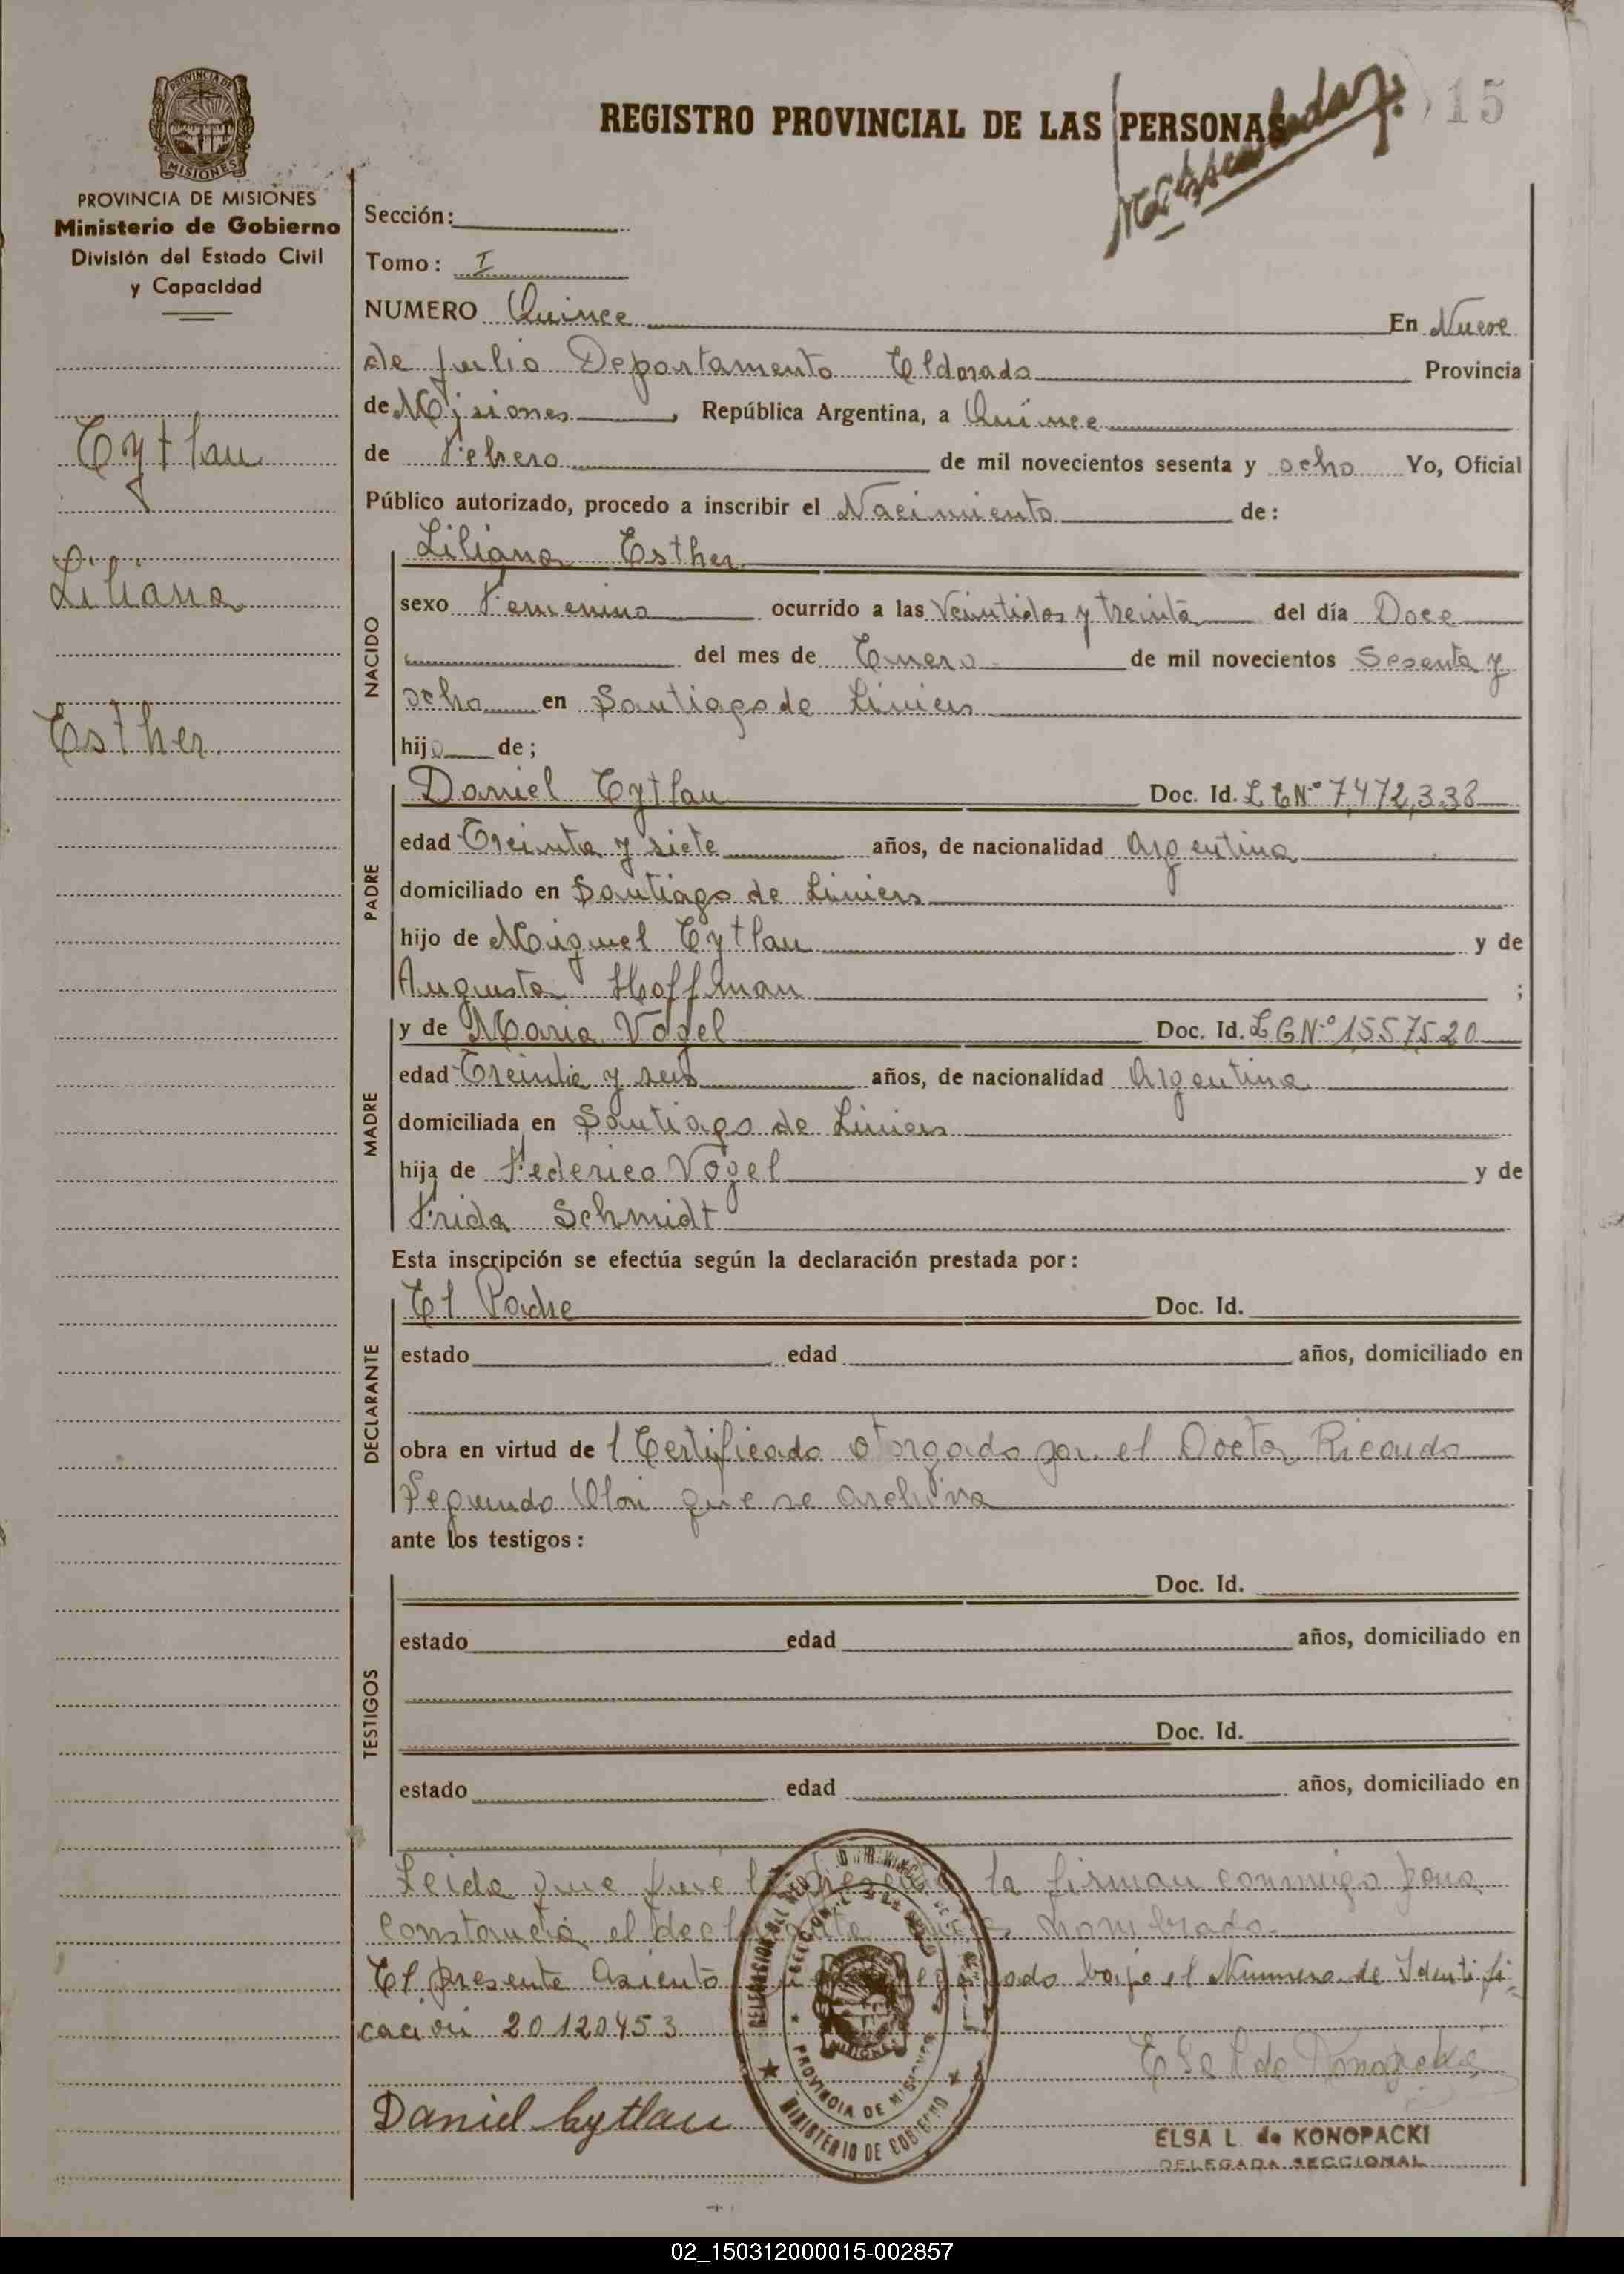 REGISTRO PROVINCIAL DE LAS PERSONAS
15
PROVINCIA DE
MISIONES
PROVINCIA DE MISIONES
Ministerio de Gobierno
División del Estado Civil
y Capacidad
Cytlau
Liliana
Esther
Sección:
Tomo: I
NUMERO Quince En Nueve
de Julio Departamento Eldorado Provincia
de Misiones, República Argentina, a Quince
de Febrero de mil novecientos sesenta y ocho Yo, Oficial
Público autorizado, procedo a inscribir el Nacimiento de:
NACIDO
Liliana Esther
sexo Femenino ocurrido a las Veintidos y treinta del día Doce
del mes de Enero de mil novecientos Sesenta y
ocho en Santiago de Liniers
hija de;
PADRE
Daniel Cytlau Doc. Id. L E Nº 7,472,338
edad Treinta y siete años, de nacionalidad Argentina
domiciliado en Santiago de Liniers
hijo de Miguel Cytlau y de
Augusta Hoffman ;
MADRE
y de Maria Vogel Doc. Id. L C Nº 1,557,520
edad Treinta y seis años, de nacionalidad Argentina
domiciliada en Santiago de Liniers
hija de Federico Vogel y de
Frida Schmidt
Esta inscripción se efectúa según la declaración prestada por:
DECLARANTE
El Padre Doc. Id.
estado edad años, domiciliado en
obra en virtud de l Certificado otorgado por el Doctor Ricardo
Segundo que se archiva
ante los testigos:
TESTIGOS
Doc. Id.
estado edad años, domiciliado en
Doc. Id.
estado edad años, domiciliado en
Leida que fue la presente la firman conmigo para
constancia el declarante nombrado.
El presente asiento bajo el Numero de Identifi-
cación 20120453
Daniel Cytlau
PROVINCIA DE MISIONES
MINISTERIO DE GOBIERNO
ELSA L. de KONOPACKI
DELEGADA SECCIONAL
02_150312000015-002857